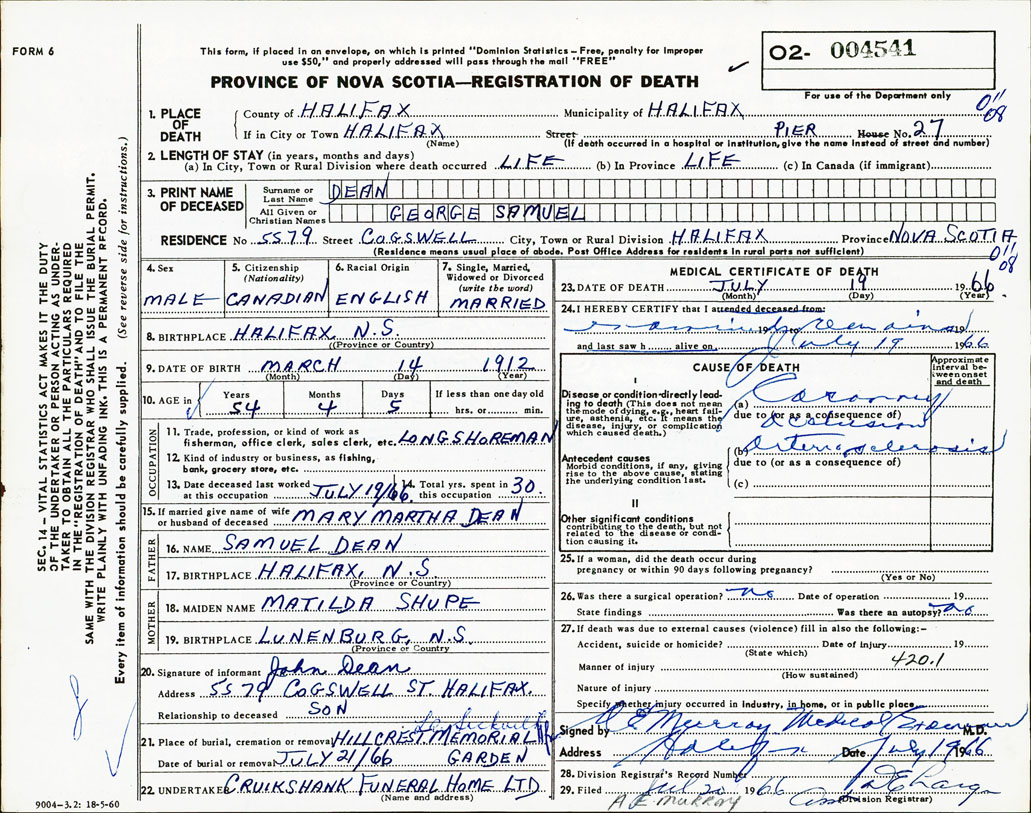 FORM 6
This form, if placed in an envelope, on which is printed "Dominion Statistics – Free, penalty for improper
use $50," and properly addressed will pass through the mail "FREE"
O2- 004541
For use of the Department only
PROVINCE OF NOVA SCOTIA—REGISTRATION OF DEATH
011
08
SEC. 14 – VITAL STATISTICS ACT MAKES IT THE DUTY
OF THE UNDERTAKER OR PERSON ACTING AS UNDER-
TAKER TO OBTAIN ALL THE PARTICULARS REQUIRED
IN THE "REGISTRATION OF DEATH" AND TO FILE THE
SAME WITH THE DIVISION REGISTRAR WHO SHALL ISSUE THE BURIAL PERMIT.
WRITE PLAINLY WITH UNFADING INK. THIS IS A PERMANENT RECORD.
Every item of information should be carefully supplied. (See reverse side for instructions.)
1. PLACE OF DEATH
County of HALIFAX Municipality of HALIFAX
If in City or Town HALIFAX Street PIER House No. 27
(Name) (If death occurred in a hospital or institution, give the name instead of street and number)
2. LENGTH OF STAY (in years, months and days)
(a) In City, Town or Rural Division where death occurred LIFE (b) In Province LIFE (c) In Canada (if immigrant)
3. PRINT NAME OF DECEASED
Surname or Last Name DEAN
All Given or Christian Names GEORGE SAMUEL
RESIDENCE No 5579 Street COGSWELL City, Town or Rural Division HALIFAX Province NOVA SCOTIA
(Residence means usual place of abode. Post Office Address for residents in rural parts not sufficient)
011
08
4. Sex
MALE
5. Citizenship
(Nationality)
CANADIAN
6. Racial Origin
ENGLISH
7. Single, Married,
Widowed or Divorced
(write the word)
MARRIED
8. BIRTHPLACE HALIFAX, N.S.
(Province or Country)
9. DATE OF BIRTH MARCH 14 1912
(Month) (Day) (Year)
10. AGE in Years Months Days If less than one day old
54 4 5 hrs. or min.
OCCUPATION
11. Trade, profession, or kind of work as
fisherman, office clerk, sales clerk, etc. LONGSHOREMAN
12. Kind of industry or business, as fishing,
bank, grocery store, etc.
13. Date deceased last worked at this occupation JULY 19/66
14. Total yrs. spent in this occupation 30.
15. If married give name of wife
or husband of deceased MARY MARTHA DEAN
FATHER
16. NAME SAMUEL DEAN
17. BIRTHPLACE HALIFAX, N.S
(Province or Country)
MOTHER
18. MAIDEN NAME MATILDA SHUPE
19. BIRTHPLACE LUNENBURG, N.S.
(Province or Country)
20. Signature of informant John Dean
Address 5579 COGSWELL ST. HALIFAX.
Relationship to deceased SON
21. Place of burial, cremation or removal HILLCREST MEMORIAL
Date of burial or removal JULY 21/66 GARDEN
22. UNDERTAKER CRUIKSHANK FUNERAL HOME LTD
(Name and address)
9004–3.2: 18-5-60
MEDICAL CERTIFICATE OF DEATH
23. DATE OF DEATH JULY 19 1966
(Month) (Day) (Year)
24. I HEREBY CERTIFY that I attended deceased from:
examined 19 to remains 19
and last saw h alive on July 19 1966
CAUSE OF DEATH
Approximate
interval be-
tween onset
and death
I
Disease or condition directly lead-
ing to death (This does not mean
the mode of dying, e.g., heart fail-
ure, asthenia, etc. It means the
disease, injury, or complication
which caused death.)
(a) Coronary
due to (or as a consequence of)
occlusion
(b) Arteriosclerosis
due to (or as a consequence of)
(c)
Antecedent causes
Morbid conditions, if any, giving
rise to the above cause, stating
the underlying condition last.
II
Other significant conditions
contributing to the death, but not
related to the disease or condi-
tion causing it.
25. If a woman, did the death occur during
pregnancy or within 90 days following pregnancy?
(Yes or No)
26. Was there a surgical operation? no Date of operation 19
State findings Was there an autopsy? no
27. If death was due to external causes (violence) fill in also the following:–
Accident, suicide or homicide? Date of injury 19
(State which)
420.1
Manner of injury
(How sustained)
Nature of injury
Specify whether injury occurred in Industry, in home, or in public place
Signed by A E Murray Medical Examiner M.D.
Address Halifax Date July 19 1966
28. Division Registrar's Record Number
29. Filed Jul 20 1966
(Division Registrar)
A E MURRAY